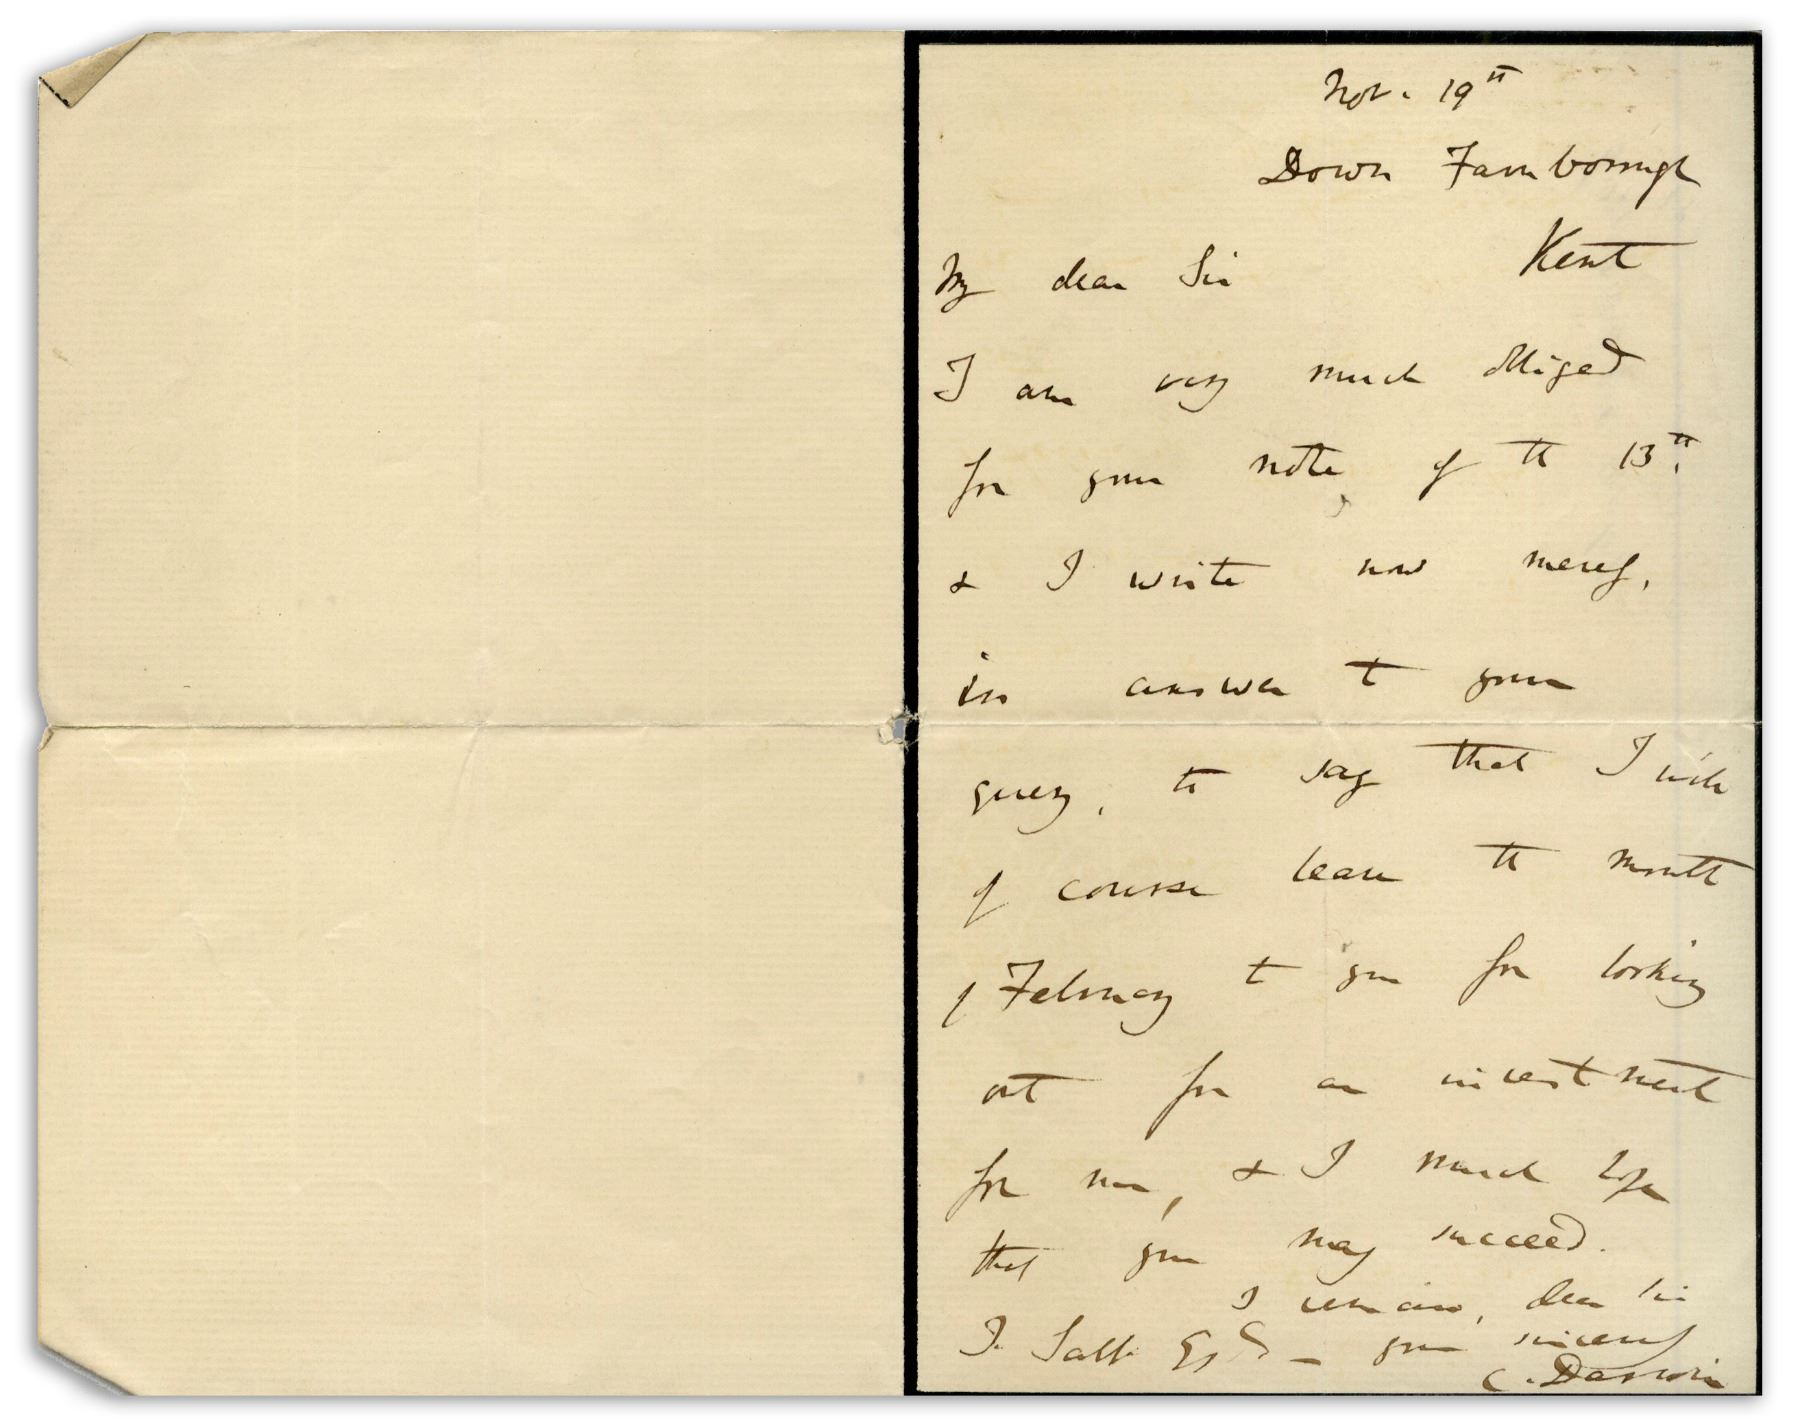 Nov. 19th
Down Farnborough
Kent
My dear Sir
I am very much obliged
for your note of the 13th.
& I write now merely,
in answer to your
query, to say that I wish
of course leave the month
of February to you for looking
out for an investment
for me, & I much hope
that you may succeed.
I remain, dear Sir
J. Salt Esq – yours sincerely
C. Darwin